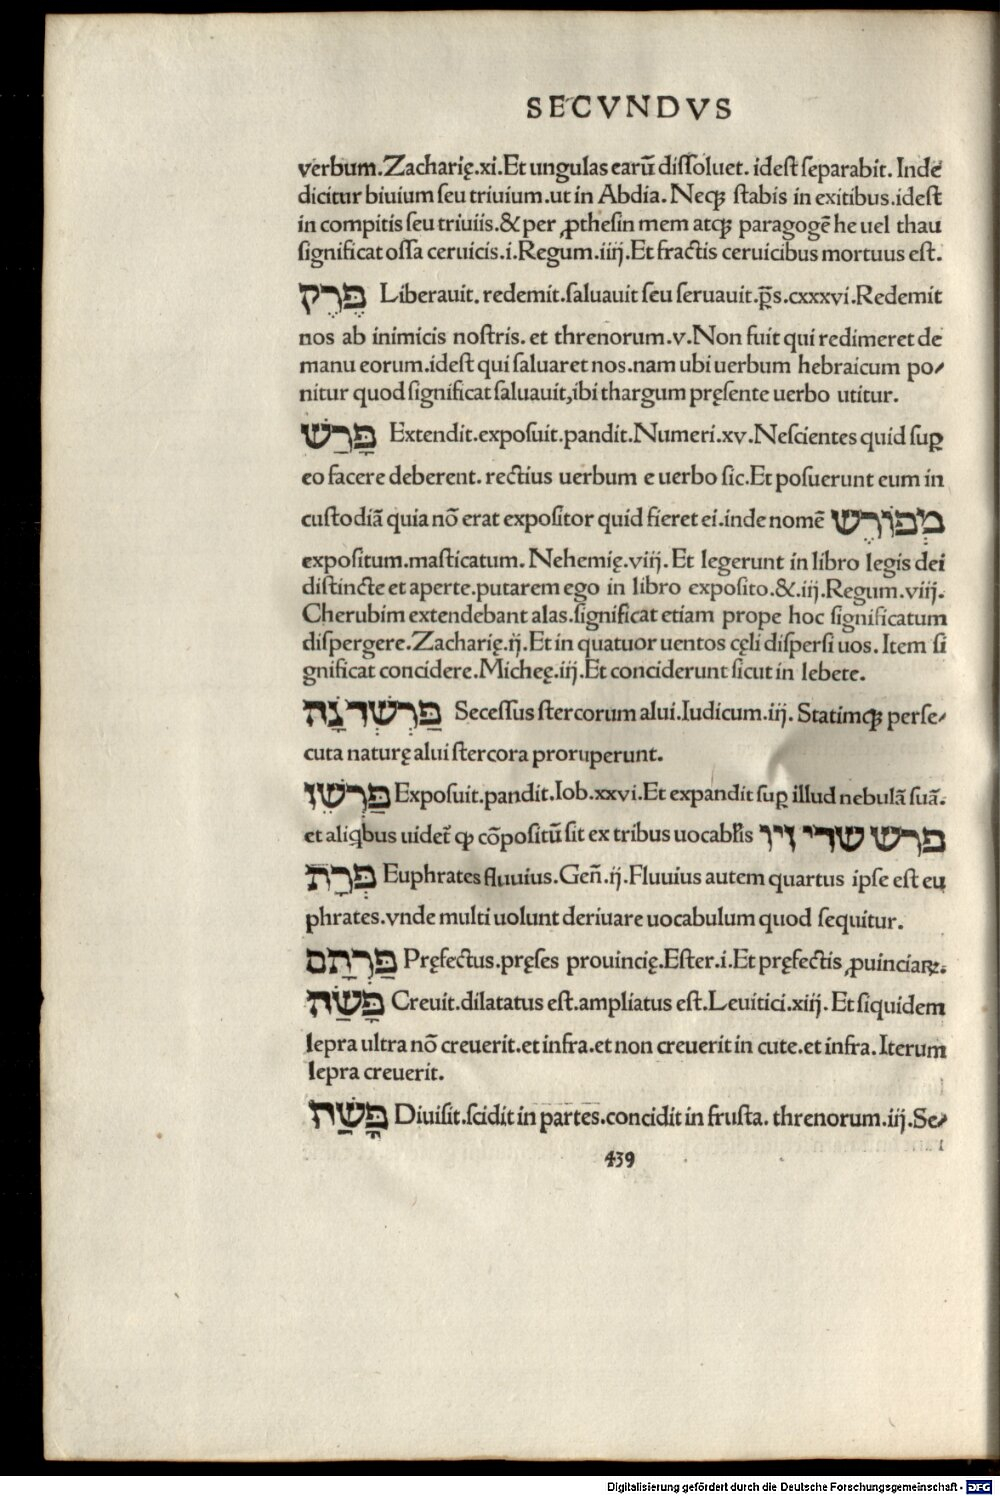 SECVNDVS
verbum.Zacharię.xi.Et ungulas earū dissoluet. idest separabit. Inde
dicitur biuium seu triuium.ut in Abdia. Neqꝫ stabis in exitibus.idest
in compitis seu triuiis.& per ꝓthesin mem atqꝫ paragogē he uel thau
significat ossa ceruicis.i.Regum.iiij.Et fractis ceruicibus mortuus est.
פֶּרֶק Liberauit. redemit.saluauit seu seruauit.p̄s.cxxxvi.Redemit
nos ab inimicis nostris. et threnorum.v.Non fuit qui redimeret de
manu eorum.idest qui saluaret nos.nam ubi uerbum hebraicum po⸗
nitur quod significat saluauit,ibi thargum pręsente uerbo utitur.
פָּרַשׁ Extendit.exposuit.pandit.Numeri.xv.Nescientes quid suꝑ
eo facere deberent. rectius uerbum e uerbo sic.Et posuerunt eum in
custodiā quia nō erat expositor quid fieret ei.inde nomē מְפוֹרָשׁ
expositum.masticatum. Nehemię.viij. Et legerunt in libro legis dei
distincte et aperte.putarem ego in libro exposito.&.iij.Regum.viij.
Cherubim extendebant alas.significat etiam prope hoc significatum
dispergere.Zacharię.ij.Et in quatuor uentos cęli dispersi uos. Item si
gnificat concidere.Micheę.iij.Et conciderunt sicut in lebete.
פַּרְשְׁדֹנָה Secessus stercorum alui.Iudicum.iij. Statimqꝫ perse⸗
cuta naturę alui stercora proruperunt.
פַּרְשֵׁז Exposuit.pandit.Iob.xxvi.Et expandit suꝑ illud nebulā suā.
et aliqbus uidet᷑ ꝙ cōpositū sit ex tribus uocablis פרש שדי זיו
פְּרָת Euphrates fluuius.Gen̄.ij.Fluuius autem quartus ipse est eu
phrates.vnde multi uolunt deriuare uocabulum quod sequitur.
פַּרְתָּם Pręfectus.pręses prouincię.Ester.i.Et pręfectis ꝓuinciaꝝ.
פָּשָׂה Creuit.dilatatus est.ampliatus est.Leuitici.xiij. Et siquidem
lepra ultra nō creuerit.et infra.et non creuerit in cute.et infra. Iterum
lepra creuerit.
פָּשַׁח Diuisit.scidit in partes.concidit in frusta. threnorum.iij.Se⸗
439
Digitalisierung gefördert durch die Deutsche Forschungsgemeinschaft - DFG